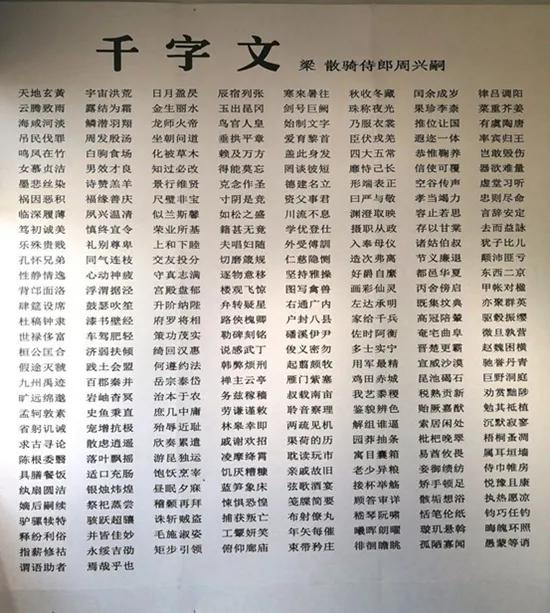 千字文 梁 散骑侍郎周兴嗣
天地玄黄 宇宙洪荒 日月盈昃 辰宿列张 寒来暑往 秋收冬藏 闰余成岁 律吕调阳
云腾致雨 露结为霜 金生丽水 玉出昆冈 剑号巨阙 珠称夜光 果珍李柰 菜重芥姜
海咸河淡 鳞潜羽翔 龙师火帝 鸟官人皇 始制文字 乃服衣裳 推位让国 有虞陶唐
吊民伐罪 周发殷汤 坐朝问道 垂拱平章 爱育黎首 臣伏戎羌 遐迩一体 率宾归王
鸣凤在竹 白驹食场 化被草木 赖及万方 盖此身发 四大五常 恭惟鞠养 岂敢毁伤
女慕贞洁 男效才良 知过必改 得能莫忘 罔谈彼短 靡恃己长 信使可覆 器欲难量
墨悲丝染 诗赞羔羊 景行维贤 克念作圣 德建名立 形端表正 空谷传声 虚堂习听
祸因恶积 福缘善庆 尺璧非宝 寸阴是竞 资父事君 曰严与敬 孝当竭力 忠则尽命
临深履薄 夙兴温清 似兰斯馨 如松之盛 川流不息 渊澄取映 容止若思 言辞安定
笃初诚美 慎终宜令 荣业所基 籍甚无竟 学优登仕 摄职从政 存以甘棠 去而益咏
乐殊贵贱 礼别尊卑 上和下睦 夫唱妇随 外受傅训 入奉母仪 诸姑伯叔 犹子比儿
孔怀兄弟 同气连枝 交友投分 切磨箴规 仁慈隐恻 造次弗离 节义廉退 颠沛匪亏
性静情逸 心动神疲 守真志满 逐物意移 坚持雅操 好爵自縻 都邑华夏 东西二京
背邙面洛 浮渭据泾 宫殿盘郁 楼观飞惊 图写禽兽 画彩仙灵 丙舍傍启 甲帐对楹
肆筵设席 鼓瑟吹笙 升阶纳陛 弁转疑星 右通广内 左达承明 既集坟典 亦聚群英
杜稿钟隶 漆书壁经 府罗将相 路侠槐卿 户封八县 家给千兵 高冠陪辇 驱毂振缨
世禄侈富 车驾肥轻 策功茂实 勒碑刻铭 磻溪伊尹 佐时阿衡 奄宅曲阜 微旦孰营
桓公匡合 济弱扶倾 绮回汉惠 说感武丁 俊义密勿 多士实宁 晋楚更霸 赵魏困横
假途灭虢 践土会盟 何遵约法 韩弊烦刑 起翦颇牧 用军最精 宣威沙漠 驰誉丹青
九州禹迹 百郡秦并 岳宗泰岱 禅主云亭 雁门紫塞 鸡田赤城 昆池碣石 巨野洞庭
旷远绵邈 岩岫杳冥 治本于农 务兹稼穑 俶载南亩 我艺黍稷 税熟贡新 劝赏黜陟
孟轲敦素 史鱼秉直 庶几中庸 劳谦谨敕 聆音察理 鉴貌辨色 贻厥嘉猷 勉其祗植
省躬讥诫 宠增抗极 殆辱近耻 林皋幸即 两疏见机 解组谁逼 索居闲处 沉默寂寥
求古寻论 散虑逍遥 欣奏累遣 戚谢欢招 渠荷的历 园莽抽条 枇杷晚翠 梧桐蚤凋
陈根委翳 落叶飘摇 游昆独运 凌摩绛霄 耽读玩市 寓目囊箱 易輶攸畏 属耳垣墙
具膳餐饭 适口充肠 饱饫烹宰 饥厌糟糠 亲戚故旧 老少异粮 妾御绩纺 侍巾帷房
纨扇圆洁 银烛炜煌 昼眠夕寐 蓝笋象床 弦歌酒宴 接杯举觞 矫手顿足 悦豫且康
嫡后嗣续 祭祀蒸尝 稽颡再拜 悚惧恐惶 笺牒简要 顾答审详 骸垢想浴 执热愿凉
驴骡犊特 骇跃超骧 诛斩贼盗 捕获叛亡 布射僚丸 嵇琴阮啸 恬笔伦纸 钧巧任钓
释纷利俗 并皆佳妙 毛施淑姿 工颦妍笑 年矢每催 曦晖朗曜 璇玑悬斡 晦魄环照
指薪修祜 永绥吉劭 矩步引领 俯仰廊庙 束带矜庄 徘徊瞻眺 孤陋寡闻 愚蒙等诮
谓语助者 焉哉乎也